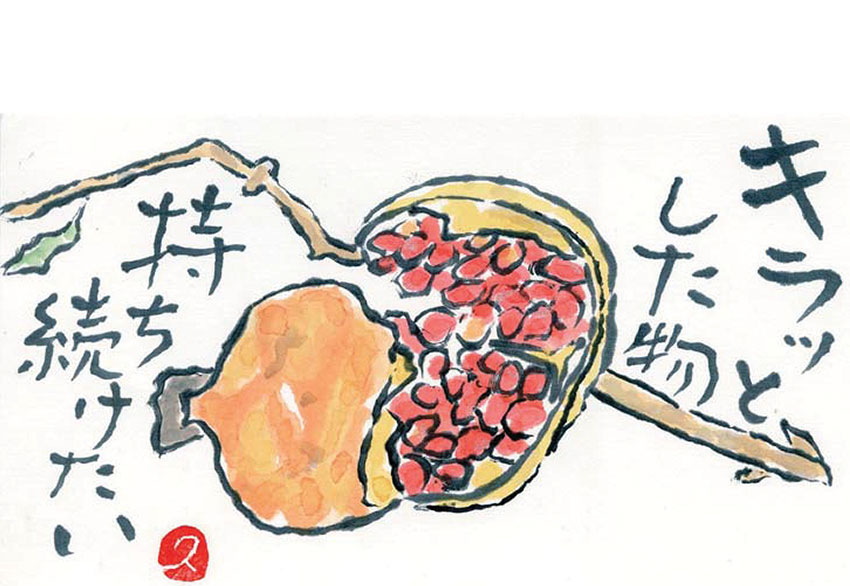 キラッと
した物
持ち
続けたい
ス